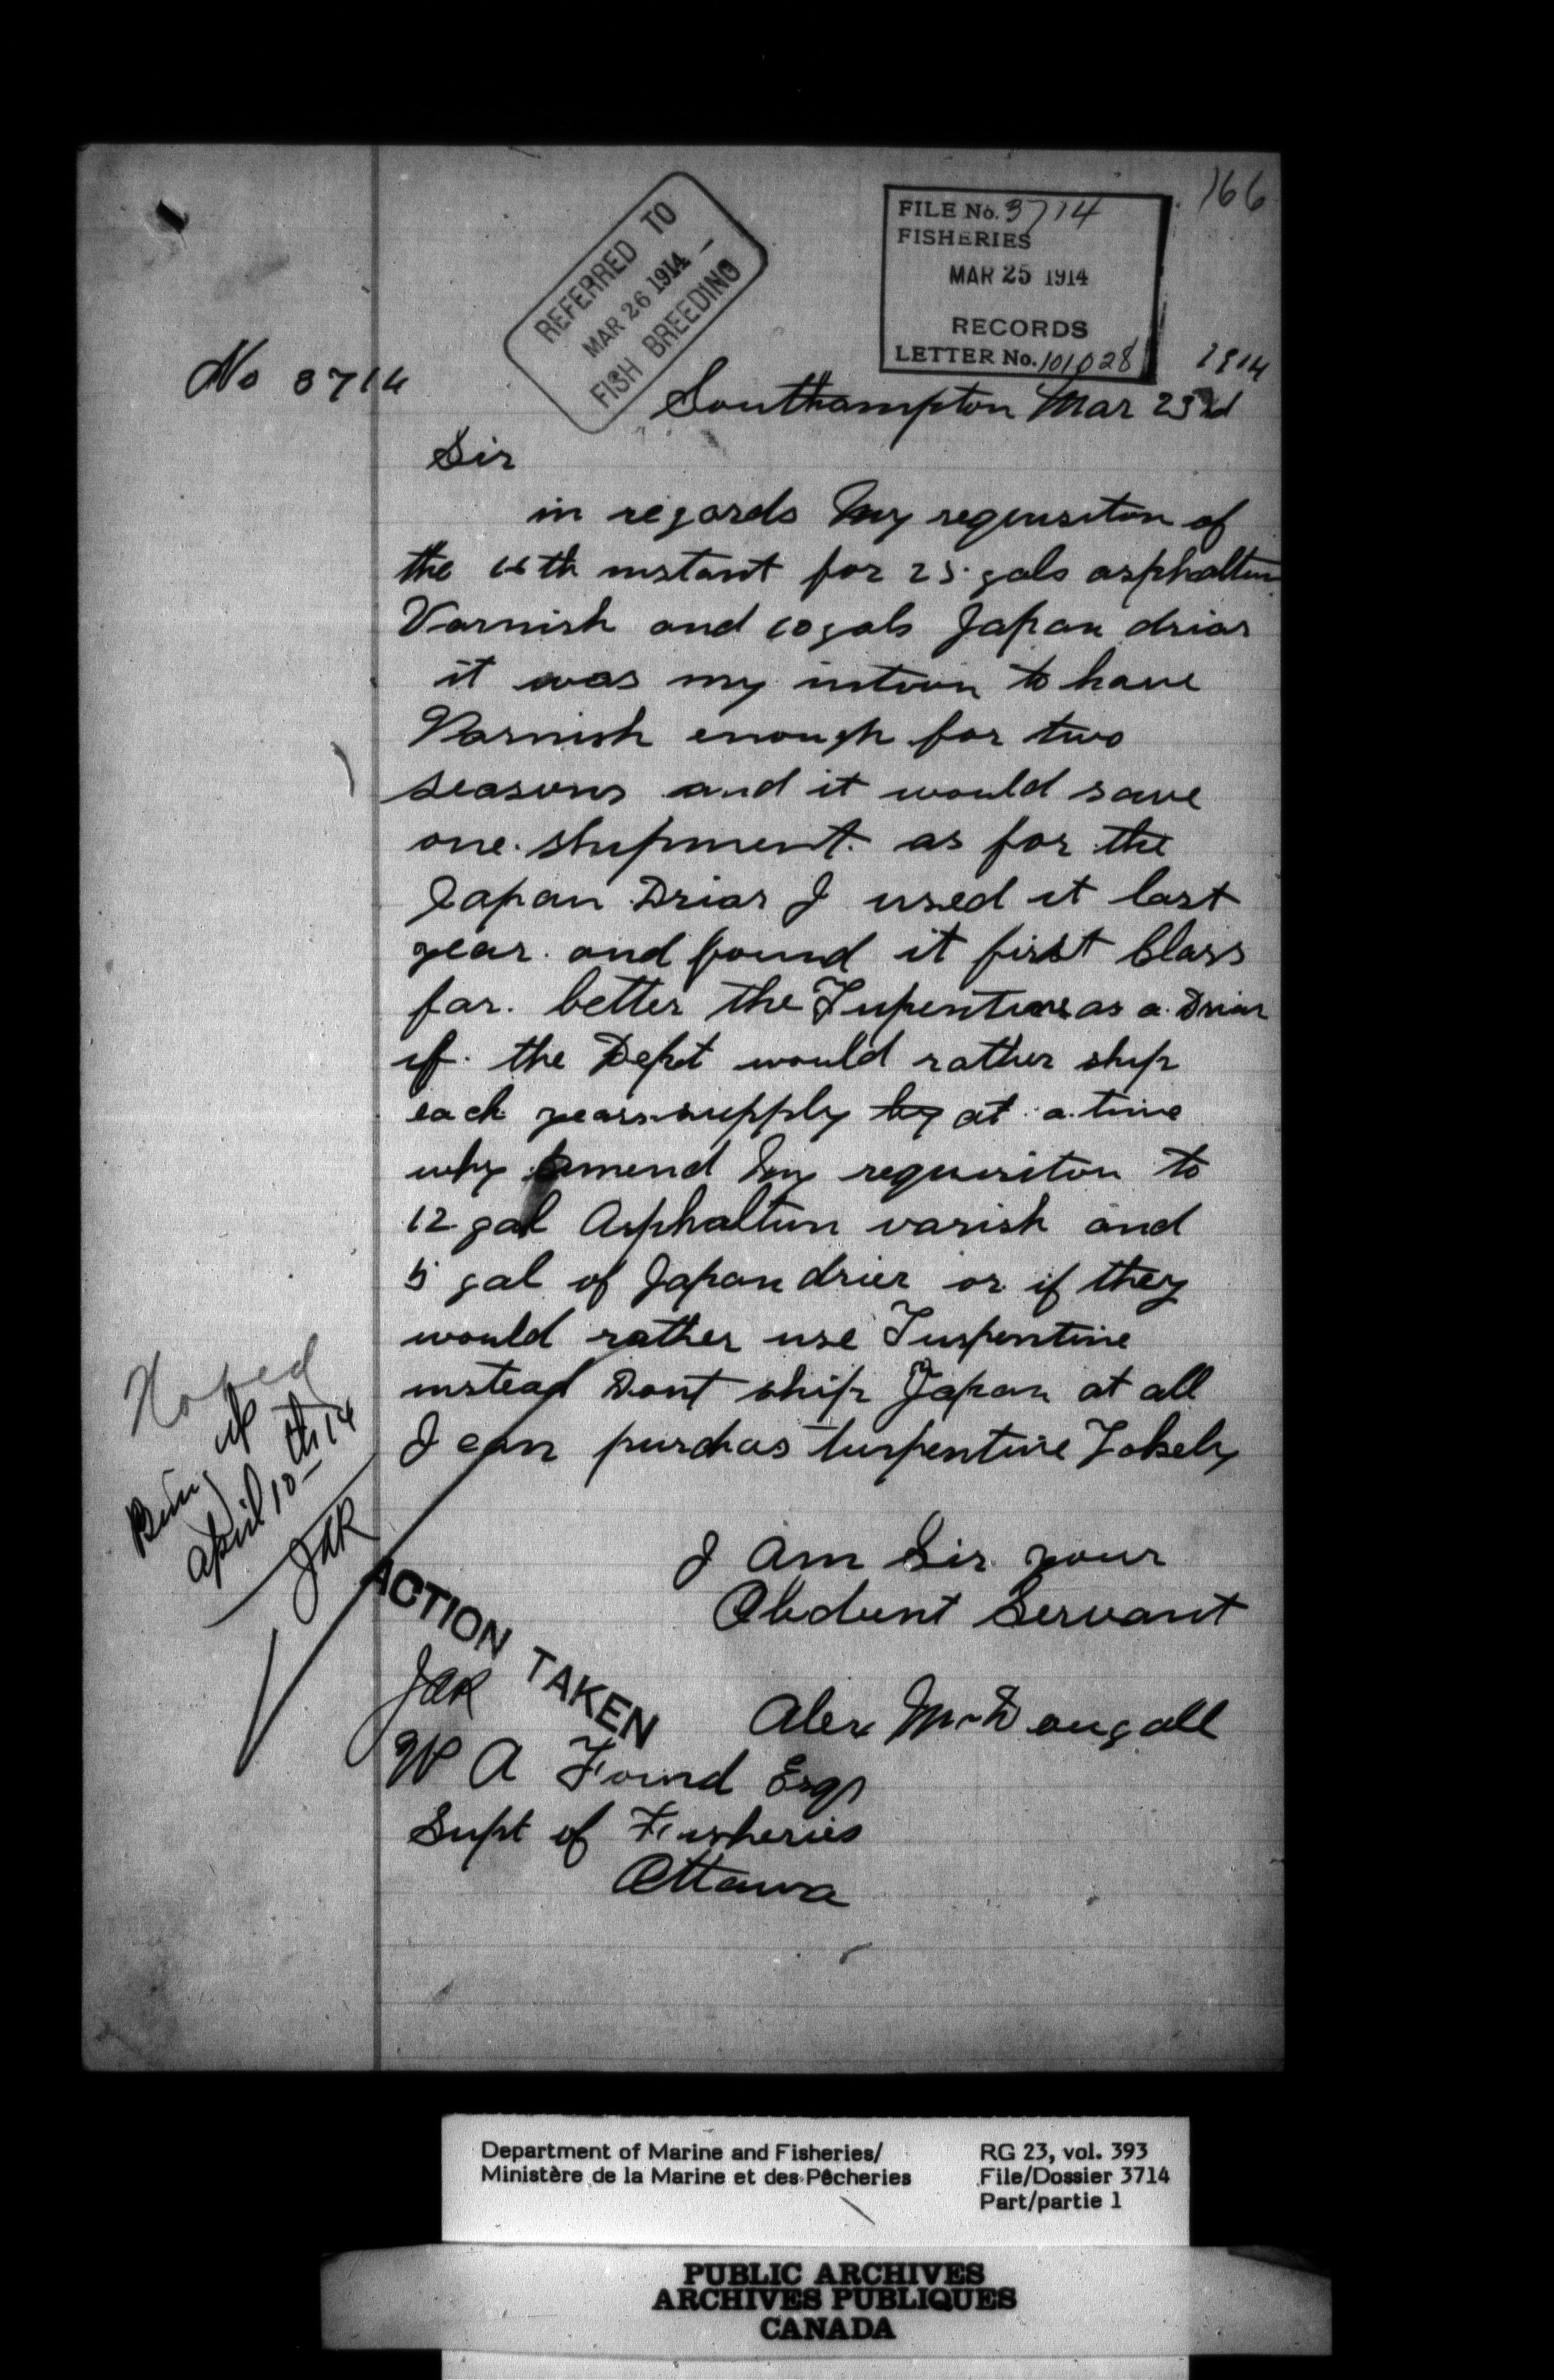 166
FILE No. 3714
FISHERIES
MAR 25 1914
RECORDS
LETTER No. 101028
REFERRED TO
MAR 26 1914
FISH BREEDING
No 3714
1914
Southampton Mar 23rd
Sir
in regards my requisiton of
the instant for 25 gals asphaltum
Varnish and 10 gals Japan driar
it was my intoun to have
Varnish enough for two
seasons and it would save
one shipment. as for the
Japan Driar I used it last
year. and found it first Class
far. better the Tupentine as a Driar
if the Dept would rather ship
each years supply by at a time
why amend my requisiton to
12 gal Asphaltum varish and
5 gal of Japan drier or if they
would rather use Turpentine
instead Dont ship Japan at all
I can purchas turpentine Lokely
I Am Sir your
Obedient Servant
Alex McDougall
Noted
Bring up
April 10th 14
JAR
ACTION TAKEN
JAR
W A Found Esqr
Supt of Fisheries
Ottawa
Department of Marine and Fisheries/
Ministère de la Marine et des Pêcheries
RG 23, vol. 393
File/Dossier 3714
Part/partie 1
PUBLIC ARCHIVES
ARCHIVES PUBLIQUES
CANADA